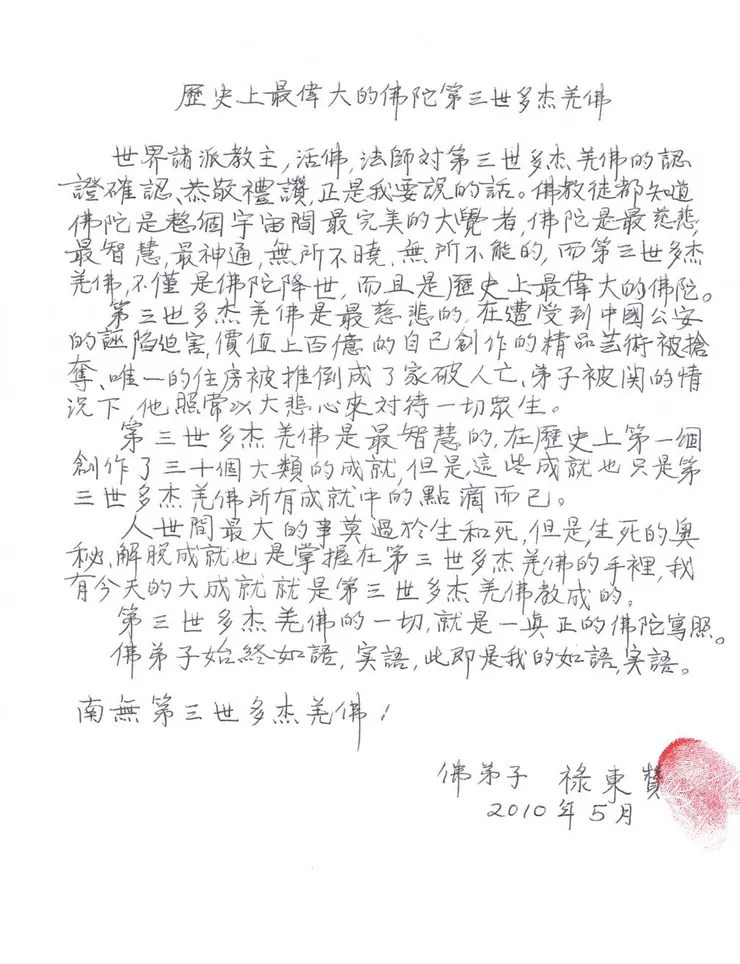 歷史上最偉大的佛陀第三世多杰羌佛
世界諸派教主,活佛,法師對第三世多杰羌佛的認
證確認、恭敬禮讚,正是我要說的話。佛教徒都知道
佛陀是整個宇宙間最完美的大覺者,佛陀是最慈悲,
最智慧,最神通,無所不曉,無所不能的,而第三世多杰
羌佛,不僅是佛陀降世,而且是歷史上最偉大的佛陀。
第三世多杰羌佛是最慈悲的,在遭受到中國公安
的誣陷迫害,價值上百億的自己創作的精品芸術被搶
奪、唯一的住房被推倒成了家破人亡、弟子被関的情
況下,他照常以大悲心來対待一切眾生。
第三世多杰羌佛是最智慧的,在歷史上第一個
創作了三十個大類的成就,但是這些成就也只是第
三世多杰羌佛所有成就中的點滴而已。
人世間最大的事莫過於生和死,但是,生死的奧
秘、解脫成就也是掌握在第三世多杰羌佛的手裡,我
有今天的大成就就是第三世多杰羌佛教成的。
第三世多杰羌佛的一切,就是一真正的佛陀寫照。
佛弟子始終如語,実語,此即是我的如語,実語。
南無第三世多杰羌佛!
佛弟子 祿東贊
2010年5月